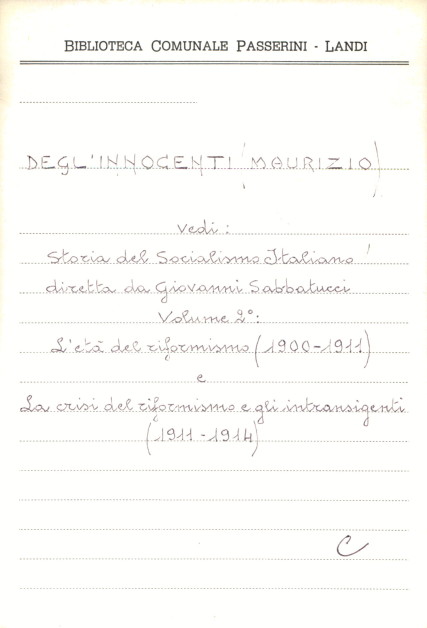 BIBLIOTECA COMUNALE PASSERINI - LANDI
DEGL'INNOCENTI (MAURIZIO)
Vedi:
Storia del Socialismo Italiano
diretta da Giovanni Sabbatucci
Volume 2°:
L'età del riformismo (1900-1911)
e
La crisi del riformismo e gli intransigenti
(1911-1914)
C